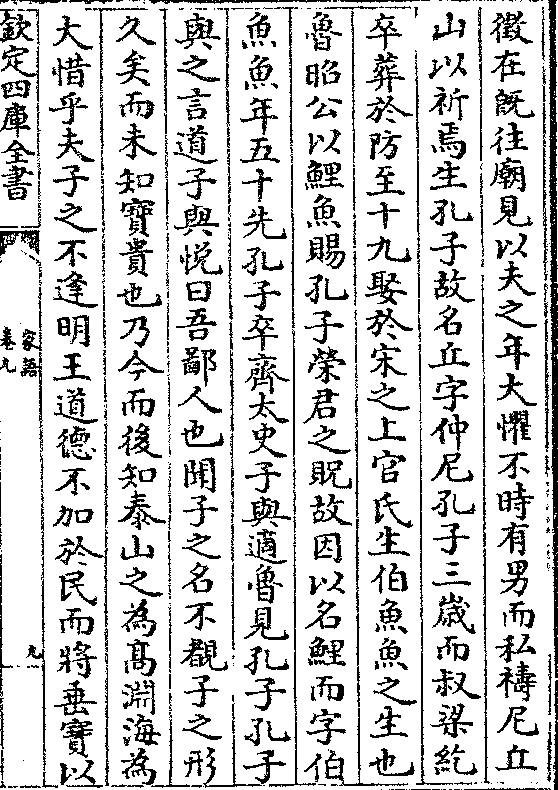 徵在既往廟見以夫之年大懼不時有男而私禱尼丘
山以祈焉生孔子故名丘字仲尼孔子三歲而叔梁紇
卒葬於防至十九娶於宋之上官氏生伯魚魚之生也
魯昭公以鯉魚賜孔子榮君之貺故因以名鯉而字伯
魚魚年五十先孔子卒齊太史子與適魯見孔子孔子
與之言道子與悅曰吾鄙人也聞子之名不覩子之形
久矣而未知寶貴也乃今而後知泰山之為髙淵海為
大惜乎夫子之不逢明王道德不加於民而將垂寶以
欽定四庫全書
家語
卷九
九